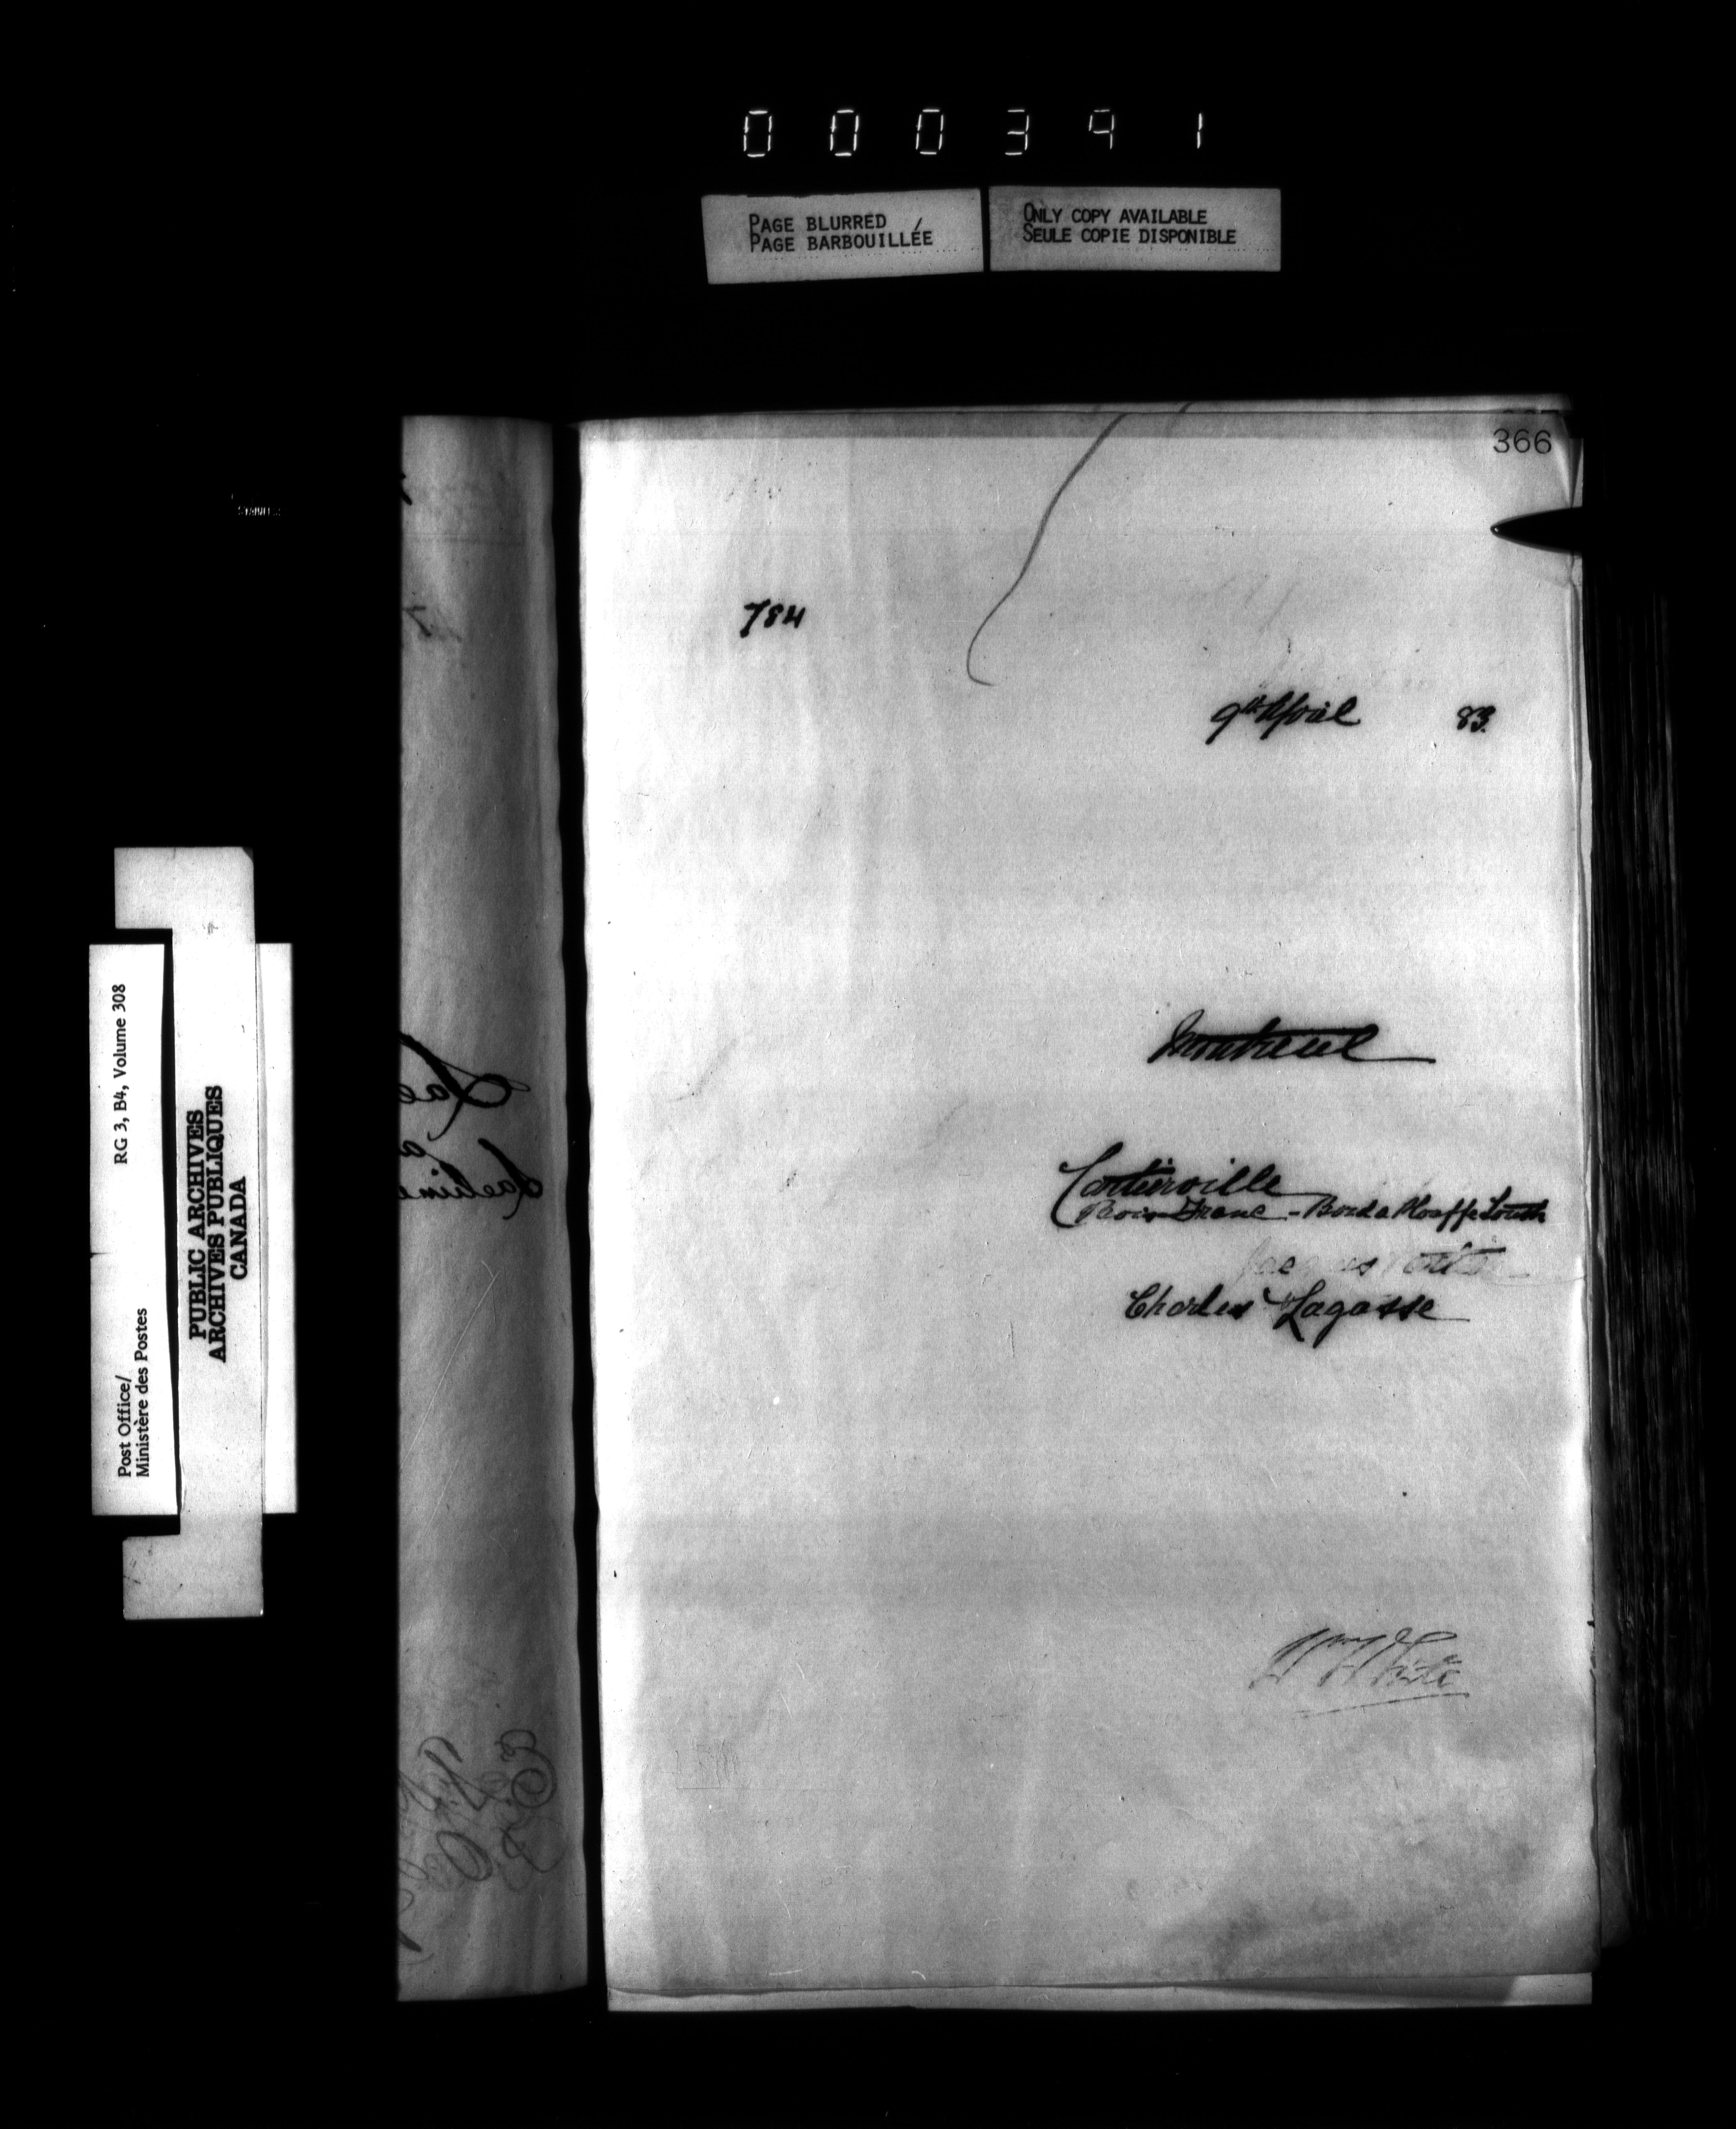 000391
PAGE BLURRED
PAGE BARBOUILLÉE
ONLY COPY AVAILABLE
SEULE COPIE DISPONIBLE
366
784
9th April 83.
Montreal
Cartierville
Bois Franc - Bord a Plouffe South
Jacques Cartier
Charles Lagasse
Wm White
Post Office/
Ministère des Postes
RG 3, B4, Volume 308
PUBLIC ARCHIVES
ARCHIVES PUBLIQUES
CANADA